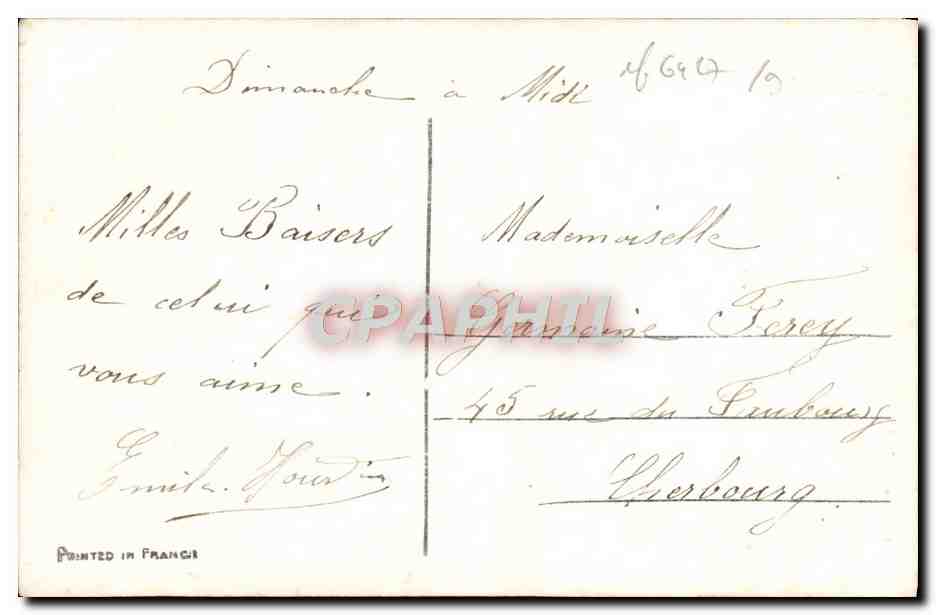 Dimanche à Midi
Milles Baisers
de celui qui
vous aime.
Emile
Mademoiselle
Germaine Ferey
45 rue du Faubourg
Cherbourg
PRINTED IN FRANCE
CPAPHIL